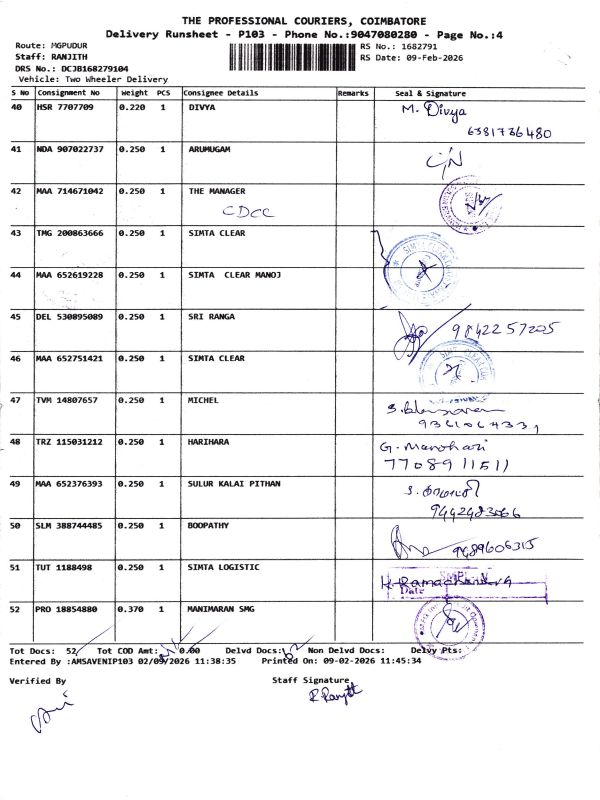 THE PROFESSIONAL COURIERS, COIMBATORE
Delivery Runsheet - P103 - Phone No.:9047080280 - Page No.:4
Route: MGPUDUR
RS No.: 1682791
Staff: RANJITH
RS Date: 09-Feb-2026
DRS No.: DCJB168279104
Vehicle: Two Wheeler Delivery
S No Consignment No Weight PCS Consignee Details Remarks Seal & Signature
40 HSR 7707709 0.220 1 DIVYA M. Divya
6381736480
41 NDA 907022737 0.250 1 ARUMUGAM
42 MAA 714671042 0.250 1 THE MANAGER
CDCC
43 TMG 200863666 0.250 1 SIMTA CLEAR
44 MAA 652619228 0.250 1 SIMTA CLEAR MANOJ
45 DEL 530895089 0.250 1 SRI RANGA 9842257205
46 MAA 652751421 0.250 1 SIMTA CLEAR
47 TVM 14807657 0.250 1 MICHEL
48 TRZ 115031212 0.250 1 HARIHARA G. Manohari
7708911511
49 MAA 652376393 0.250 1 SULUR KALAI PITHAN
50 SLM 388744485 0.250 1 BOOPATHY 9489606315
51 TUT 1188498 0.250 1 SIMTA LOGISTIC
Date
52 PRO 18854880 0.370 1 MANIMARAN SMG
Tot Docs: 52 Tot COD Amt: 0.00 Delvd Docs: Non Delvd Docs: Delvy Pts:
Entered By :AMSAVENIP103 02/09/2026 11:38:35 Printed On: 09-02-2026 11:45:34
Verified By Staff Signature
R Ranjith